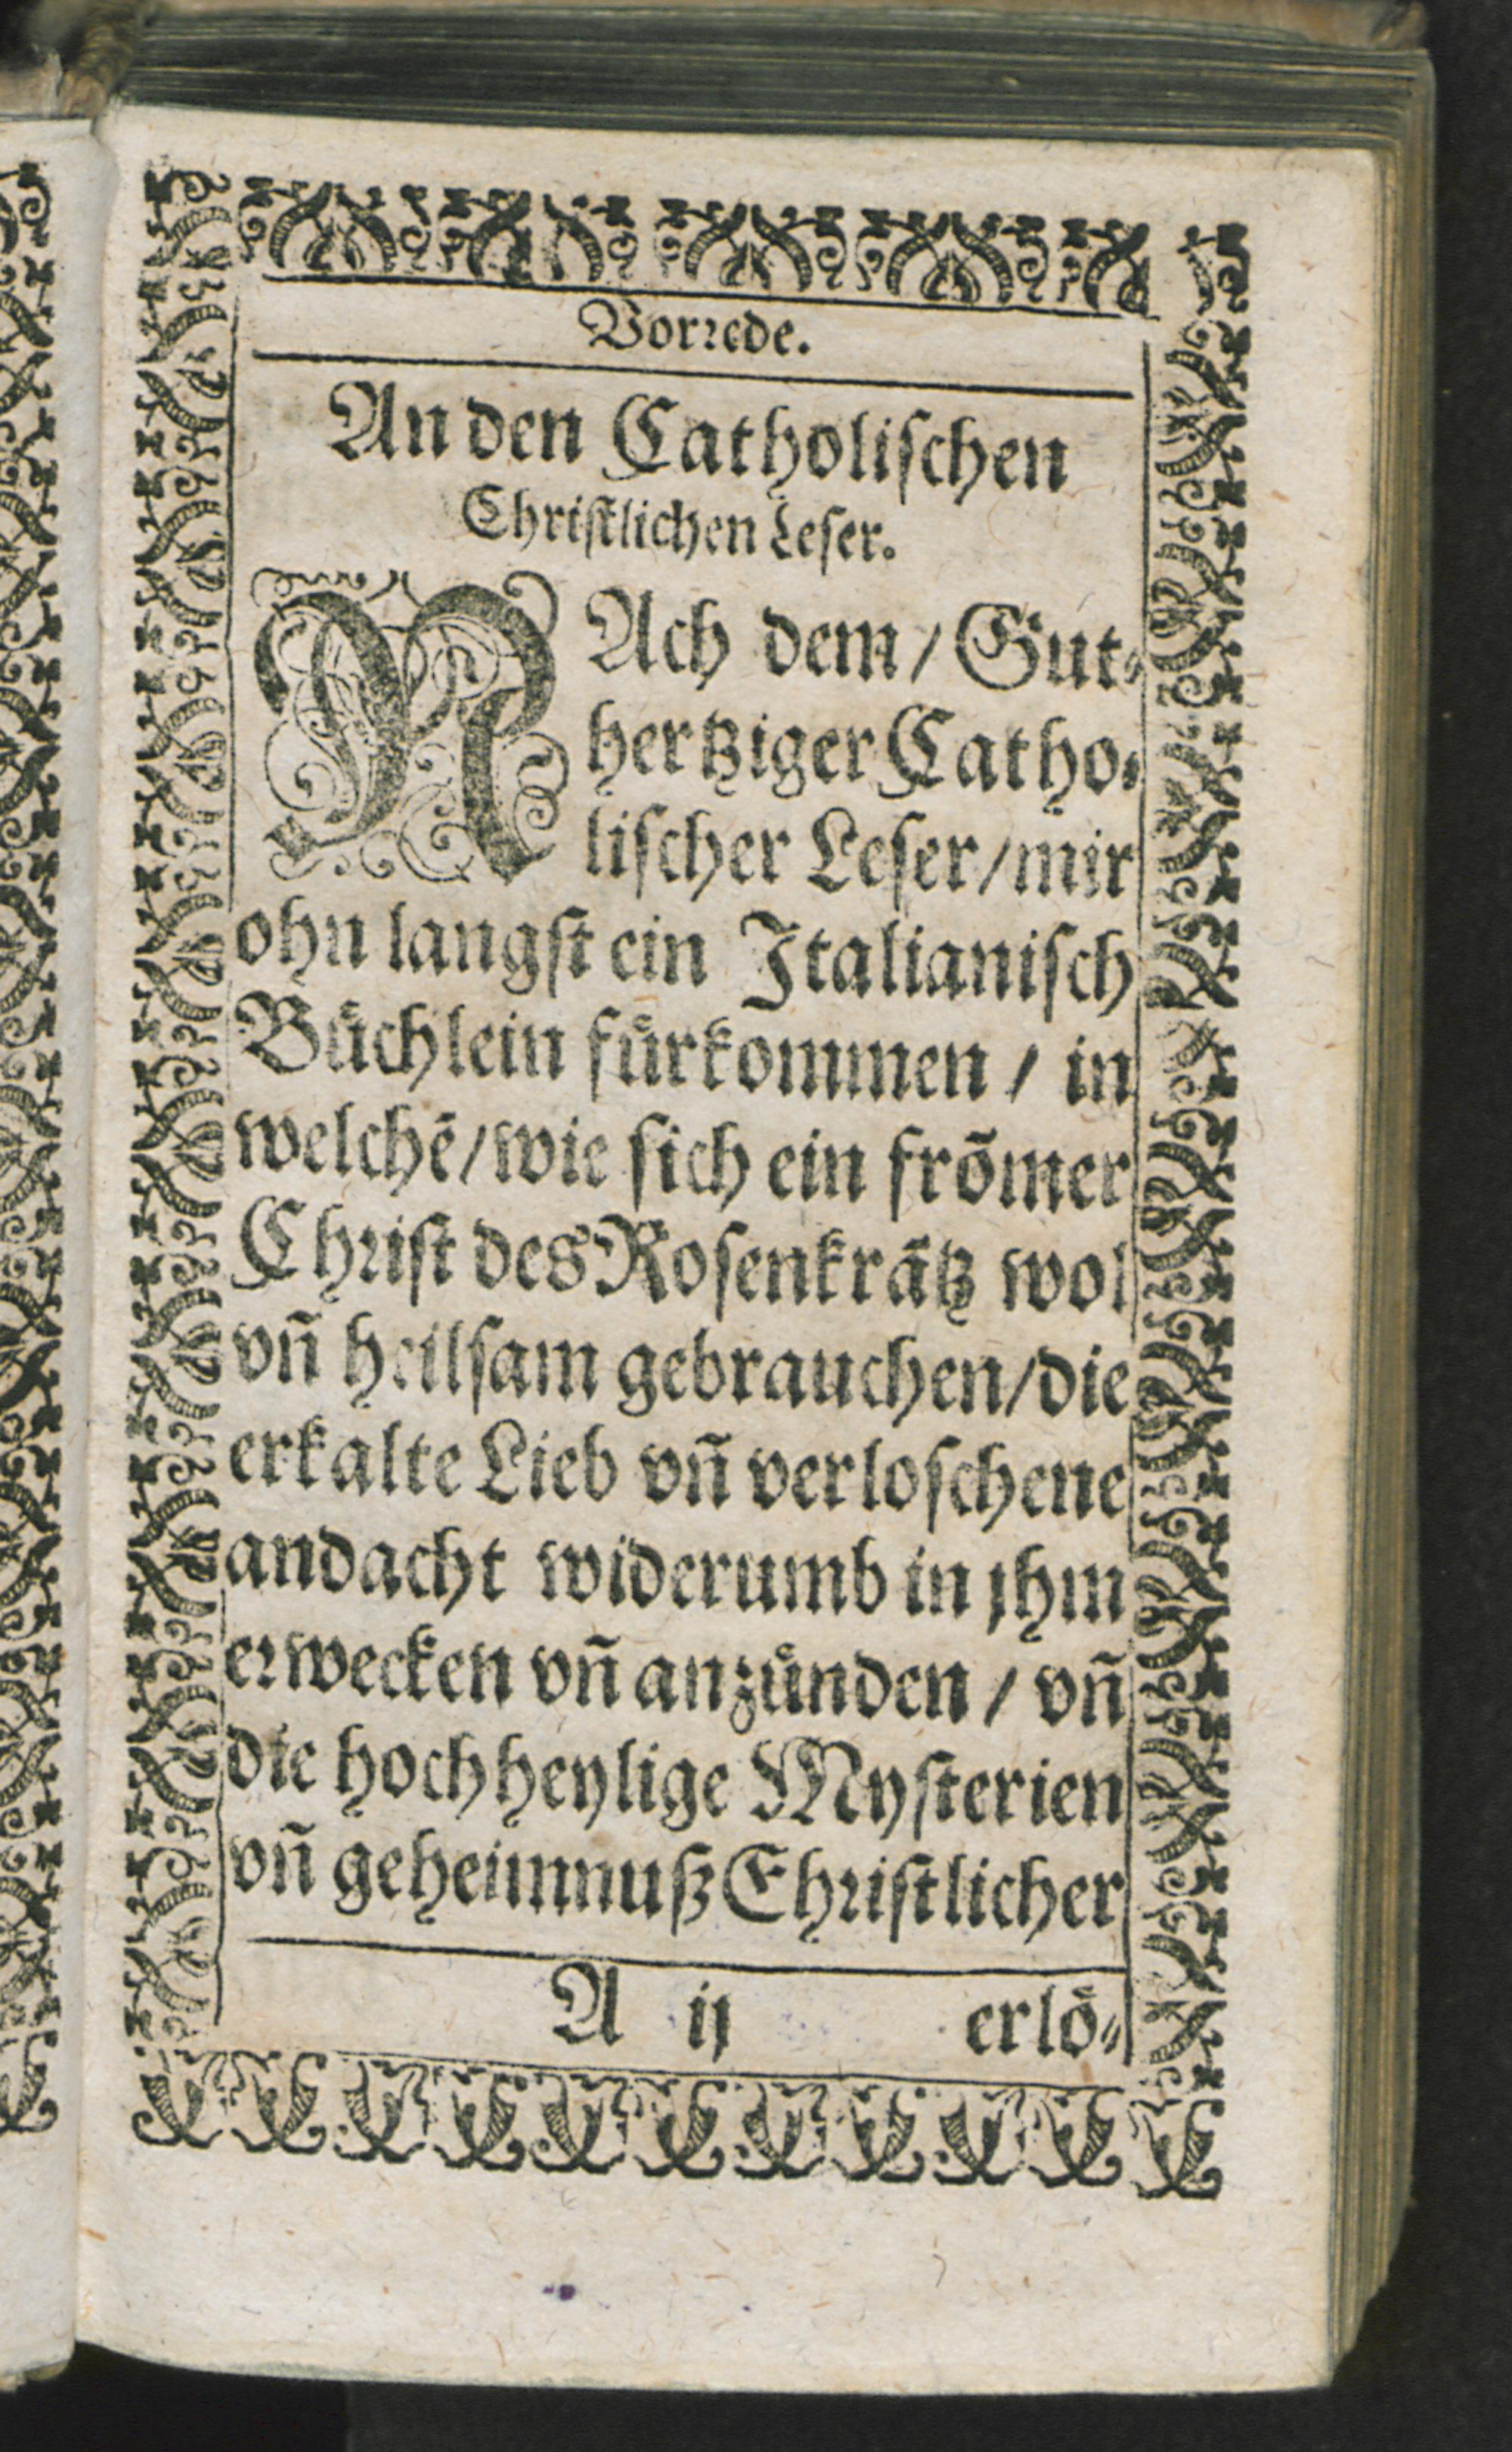 Vorꝛede.
An den Catholiſchen
Chriſtlichen Leſer.
NAch dem / Gut⸗
hertziger Catho⸗
liſcher Leſer / mir
ohn langſt ein Italianiſch
Buͤchlein fuͤrkommen / in
welchẽ / wie ſich ein frõmer
Chꝛiſt des Roſenkrãtz wol
vñ heilſam gebrauchen / die
erkalte Lieb vñ verloſchene
andacht widerumb in jhm
eꝛwecken vñ anzuͤnden / vñ
die hochheylige Myſterien
vñ geheimnuß Chꝛiſtlicher
A ij erloͤ⸗